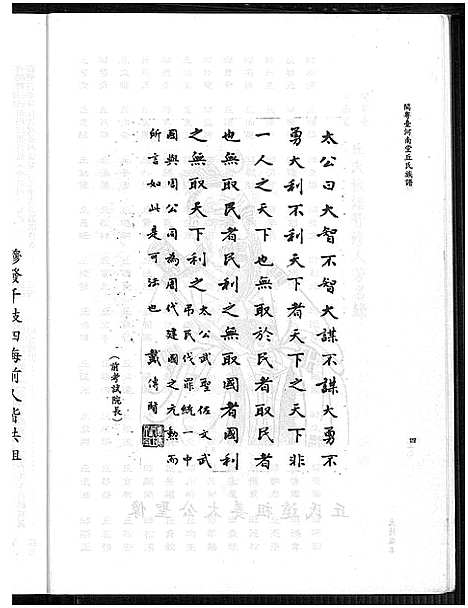 閩粵臺河南堂丘氏族譜
四
太公曰大智不智大謀不謀大勇不
勇大利不利天下者天下之天下非
一人之天下也無取於民者取民者
也無取民者民利之無取國者國利
之無取天下者天下利之太公武聖佐文武
弔民伐罪統一中
國與周公同為周代建國之元勲而
所言如此是可法也 戴傳賢
(前考試院長)
丘氏遠祖姜太公聖像
發千枝四海前人皆共祖